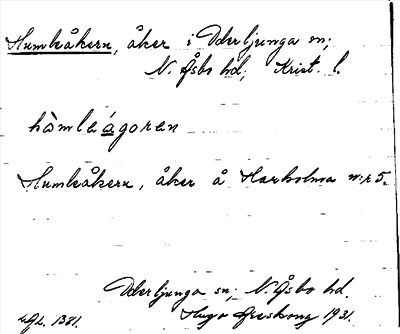 Humleåkern, åker i Oderljunga sn;
N. Åsbo hd; Krist. l.
hòmleágoren
Humleåkern, åker å Harholma n:r 5.
Oderljunga sn; N. Åsbo hd.
Hugo Areskoug 1931.